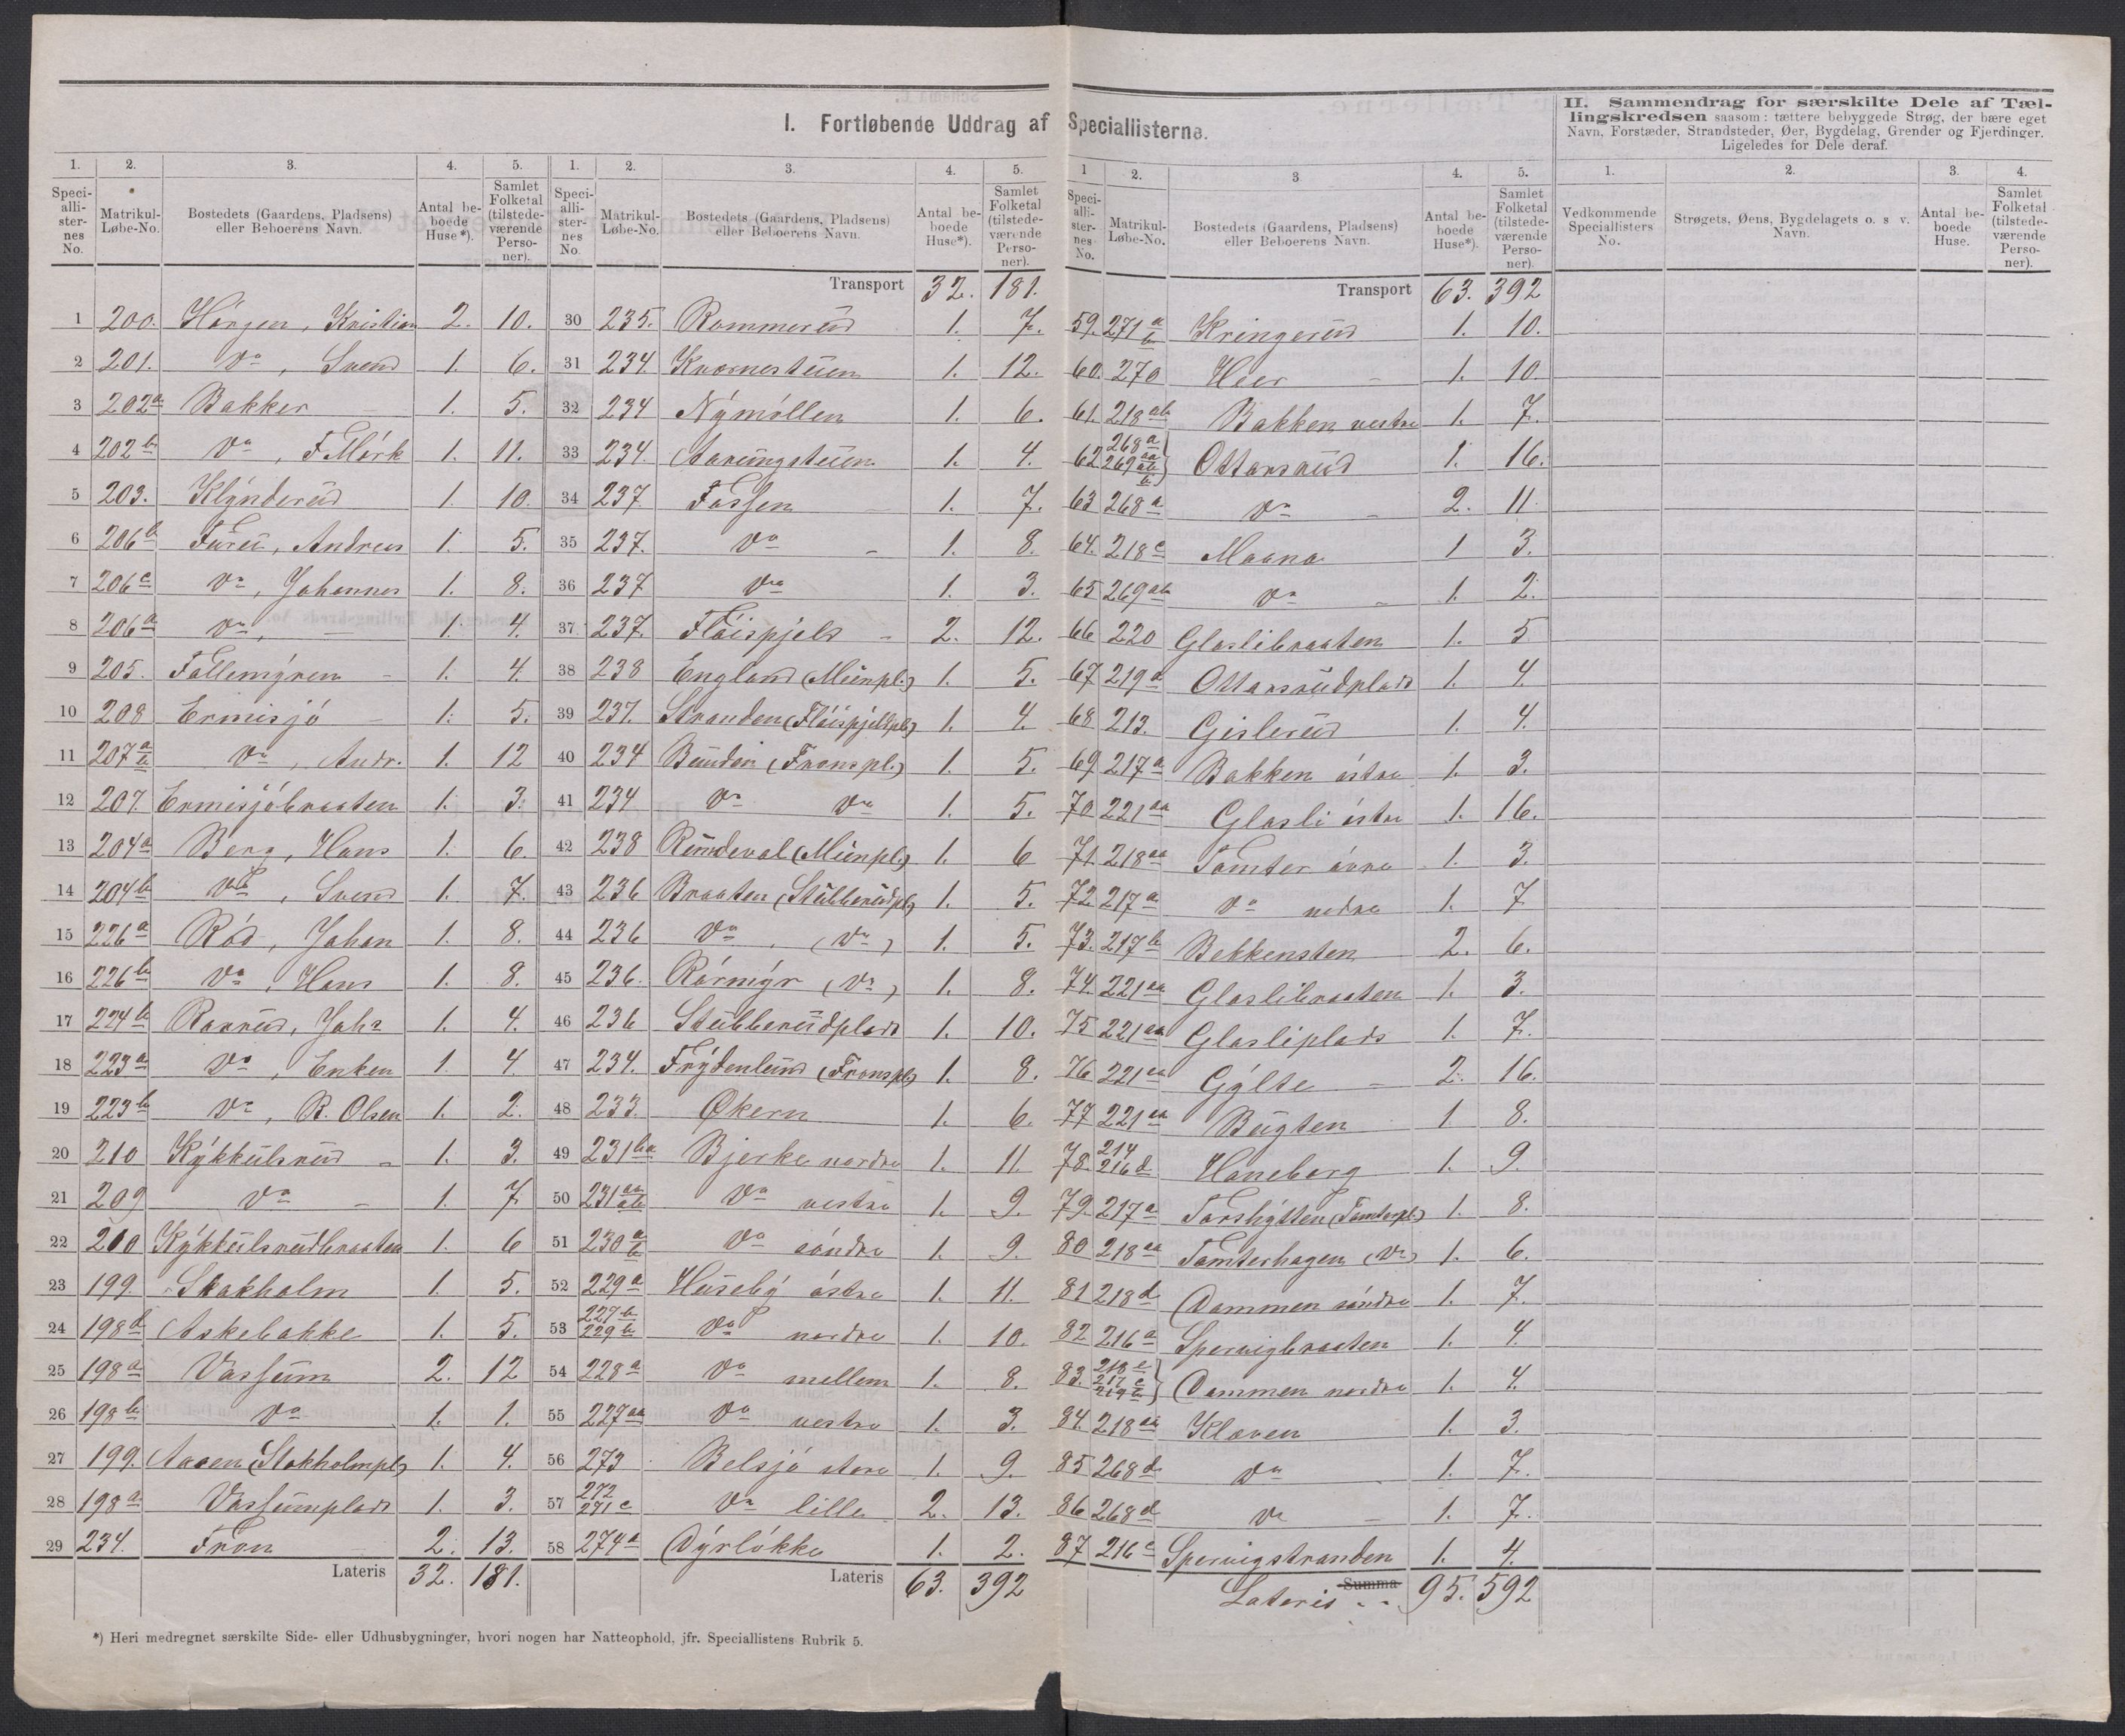 I. Fortløbende Uddrag af Speciallisterne.
II. Sammendrag for særskilte Dele af Tæl-
lingskredsen saasom: tættere bebyggede Strøg, der bære eget
Navn, Forstæder, Strandsteder, Øer, Bygdelag, Grender og Fjerdinger.
Ligeledes for Dele deraf.
1. 2. 3. 4. 5.
Speci-alli-ster-nes No. Matrikul-Løbe-No. Bostedets (Gaardens, Pladsens) eller Beboerens Navn. Antal be-boede Huse*). Samlet Folketal (tilstede-værende Perso-ner).
1 200. Hørgen, Kristian 2. 10.
2 201. Do, Svend 1. 6.
3 202a Bakker 1. 5.
4 202b Do, F. Mörk 1. 11.
5 203. Klÿnderud 1. 10.
6 206b Furu, Andreas 1. 5.
7 206c Do, Johannes 1. 8.
8 206a Do, — 1. 4.
9 205. Fallemÿren 1. 4.
10 208 Ermisjó 1. 5.
11 207a b Do, Andr. 1. 12
12 207. Ermisjóbraaten 1. 3.
13 204a Berg, Hans 1. 6.
14 204b Do, Svend 1. 7.
15 226a Ród, Johan 1. 8.
16 226b Do, Hans 1. 8.
17 224b Raxrud, Johs 1. 4.
18 223a Do, Enken 1. 4.
19 223b Do, B. Olsen 1. 2.
20 210 Kÿkkulsrud 1. 3.
21 209 Do 1. 7
22 210 Kÿkkulsrudbraaten 1. 6
23 199. Skakholm 1. 5.
24 198d Askebakke 1. 5.
25 198a Vassum 2. 12
26 198b Do 1. 1.
27 199. Aasen (Stakholmpl) 1. 4.
28 198a Vassumplads 1. 3.
29 234. Fron 2. 13.
Lateris 32. 181.
1. 2. 3. 4. 5.
Speci-alli-ster-nes No. Matrikul-Løbe-No. Bostedets (Gaardens, Pladsens) eller Beboerens Navn. Antal be-boede Huse*). Samlet Folketal (tilstede-værende Perso-ner).
Transport 32. 181.
30 235. Rommerud 1. 7.
31 234 Kvarnestuen 1. 12.
32 234 Nÿmóllen 1. 6.
33 234. Aarungstuen 1. 4.
34 237 Fossen 1. 7.
35 237. Do 1. 8.
36 237 Do 1. 3.
37 237. Flóispjeld 2. 12.
38 238 England (Munpl.) 1. 5.
39 237. Stranden (Flóispjeldpl) 1. 4.
40 234 Bunden (Fronspl.) 1. 5.
41 234 Do Do 1. 5.
42 238 Rundeval (Munpl.) 1. 6
43 236 Braaten (Stubberudpl) 1. 5.
44 236 Do, (Do) 1. 5.
45 236. Rórmÿr (Do) 1. 8.
46 236 Stubberudplads 1. 10.
47 234. Frÿdenlund (Fronspl) 1. 8.
48 233. Økern 1. 6.
49 231ba Bjerke nordre 1. 11.
50 231aa ab Do vestre 1. 9.
51 230a b Do sóndre 1. 9.
52 229a Husebÿ óstre 1. 11.
53 227b 229b Do nordre 1. 10.
54 228a Do mellem 1. 8.
55 227aa Do vestre 1. 3.
56 273 Belsjó store 1. 9.
57 272 271c Do lille 2. 13.
58 274a Dÿrlókke 1. 2.
Lateris 63. 392
1 2. 3 4. 5.
Speci-alli-ster-nes No. Matrikul-Løbe-No. Bostedets (Gaardens, Pladsens) eller Beboerens Navn. Antal be-boede Huse*). Samlet Folketal (tilstede-værende Perso-ner).
Transport 63. 392
59. 271a b Kringerud 1. 10.
60. 270 Heer 1. 10.
61. 218ab Bakken vestre 1. 7.
62 268a 269aa ab b Ottarsrud 1. 16.
63 268a Do 2. 11
64. 218c Maana 1 3.
65 269ab Do 1. 2.
66 220 Glaslibraaten 1. 5
67 219a Ottarsrudplads 1. 4.
68 213. Gislerud 1. 4.
69 217a Bakken óstre 1. 3.
70 221aa Glasli óstre 1. 16.
71. 218aa Tomter óvre 1. 3.
72. 217a Do nedre 1. 7
73. 217b Bekkensten 2. 6.
74. 221aa Glaslibraaten 1. 3.
75 221aa Glasliplads 1. 7.
76 221aa Gÿlte 2. 16.
77 221aa Bugten 1 8.
78. 214 216d Haneborg 1. 9.
79. 217a Torshÿtten (Tomterpl) 1. 8.
80 218aa Tomterhagen (Do) 1. 6.
81 218d Dammen sóndre 1. 7.
82 216a Spervigbraaten 1. 4.
83. 218e 217c 219b Dammen nordre 1. 4.
84. 218aa Klaven 1. 3.
85 268d Do 1. 7.
86 268d Do 1. 7.
87 216c Spervigstranden 1. 4.
Summa
Lateris 95. 592
1. 2. 3. 4.
Vedkommende Speciallisters No. Strøgets, Øens, Bygdelagets o. s v. Navn. Antal be-boede Huse. Samlet Folketal (tilstede-værende Perso-ner).
*) Heri medregnet særskilte Side- eller Udhusbygninger, hvori nogen har Natteophold, jfr. Speciallistens Rubrik 5.